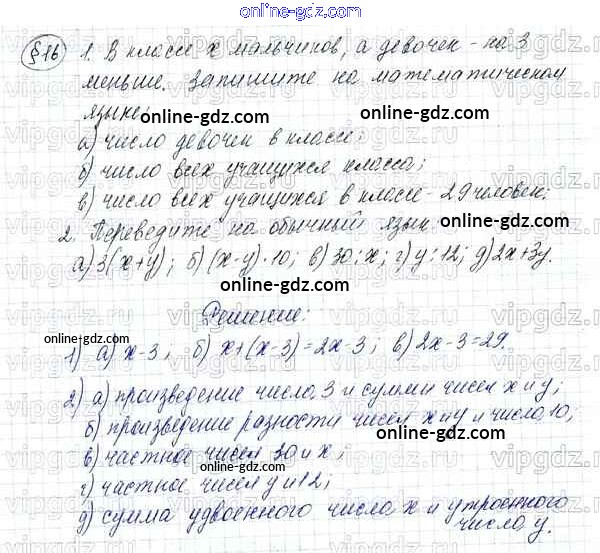 online-gdz.com
§16 1. В классе x мальчиков, а девочек - на 3
меньше. Запишите на математическом
языке:
online-gdz.com
а) число девочек в классе;
б) число всех учащихся класса;
в) число всех учащихся в классе - 29 человек;
2. Переведите на обычный язык
online-gdz.com
а) 3(x+y); б) (x-y)·10; в) 30:x; г) y:12; д) 2x+3y.
Решение:
online-gdz.com
online-gdz.com
1) а) x-3; б) x+(x-3)=2x-3; в) 2x-3=29.
2) а) произведение числа 3 и суммы чисел x и y;
б) произведение разности чисел x и y и числа 10;
online-gdz.com
в) частное чисел 30 и x;
online-gdz.com
г) частное чисел y и 12;
д) сумма удвоенного числа x и утроенного
числа y.
online-gdz.com